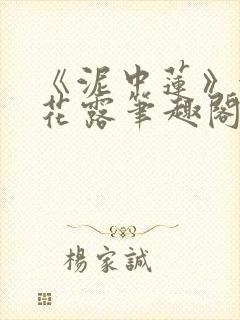 《泥中蓮》
花露筆趣閣
楊家誠